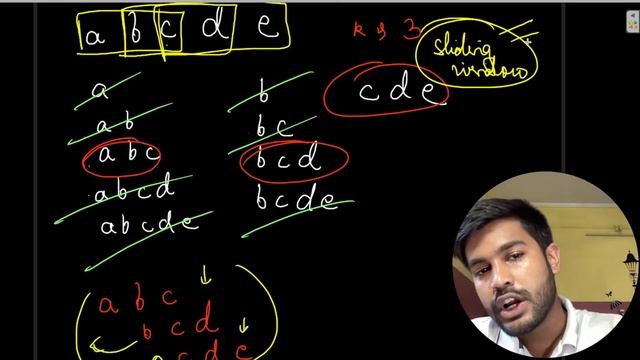 a b c d e
k = 3
sliding
window
a
a b
a b c
a b c d
a b c d e
b
b c
b c d
b c d e
c d e
a b c
b c d
c d e